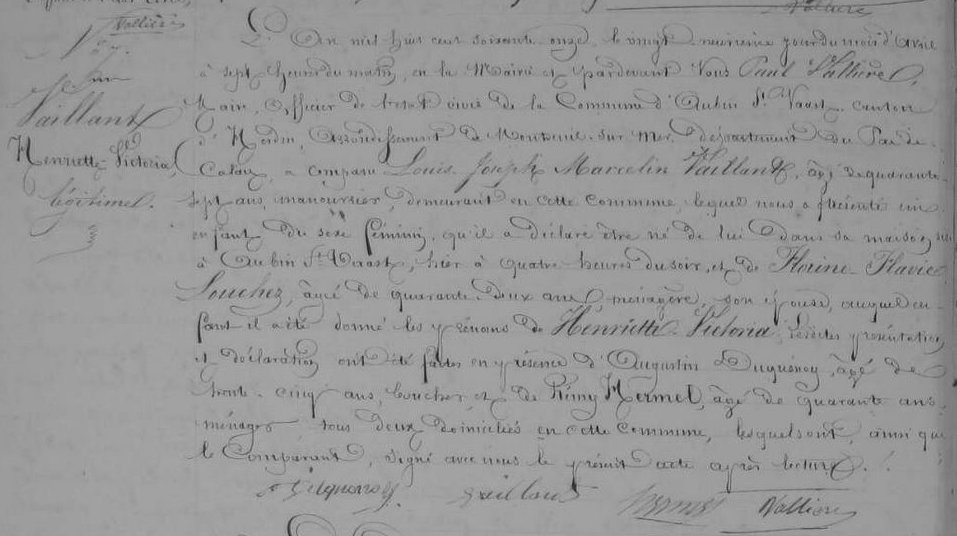 Vallière
Vallière
N° 7.
Vaillant
Henriette-Victoria,
légitime.
L'An mil huit cent soixante-onze, le vingt-neuvième jour du mois d'Avril
à sept heures du matin, en la Mairie et pardevant Nous Paul Vallière,
Maire, Officier de l'état civil de la Commune d'Aubin St Vaast, canton
d'Hesdin, Arrondissement de Montreuil-sur-Mer, département du Pas-de-
Calais, a comparu Louis Joseph Marcelin Vaillant, âgé de quarante-
sept ans, manouvrier, demeurant en cette commune, lequel nous a présenté un
enfant du sexe féminin, qu'il a déclaré être né de lui dans sa maison, sise
à Aubin St Vaast, hier à quatre heures du soir, et de Florine Flavie
Souchez, âgée de quarante-deux ans, ménagère, son épouse, auquel en-
fant il a été donné les prénoms de Henriette-Victoria; lesdites présentation
et déclaration ont été faites en présence d'Augustin Duquénoy, âgé de
trente-cinq ans, boucher, et de Rémy Hermel, âgé de quarante ans,
ménager, tous deux domiciliés en cette Commune, lesquels ont, ainsi que
le Comparant, signé avec nous le présent acte après lecture.
Vaillant Hermel Vallière